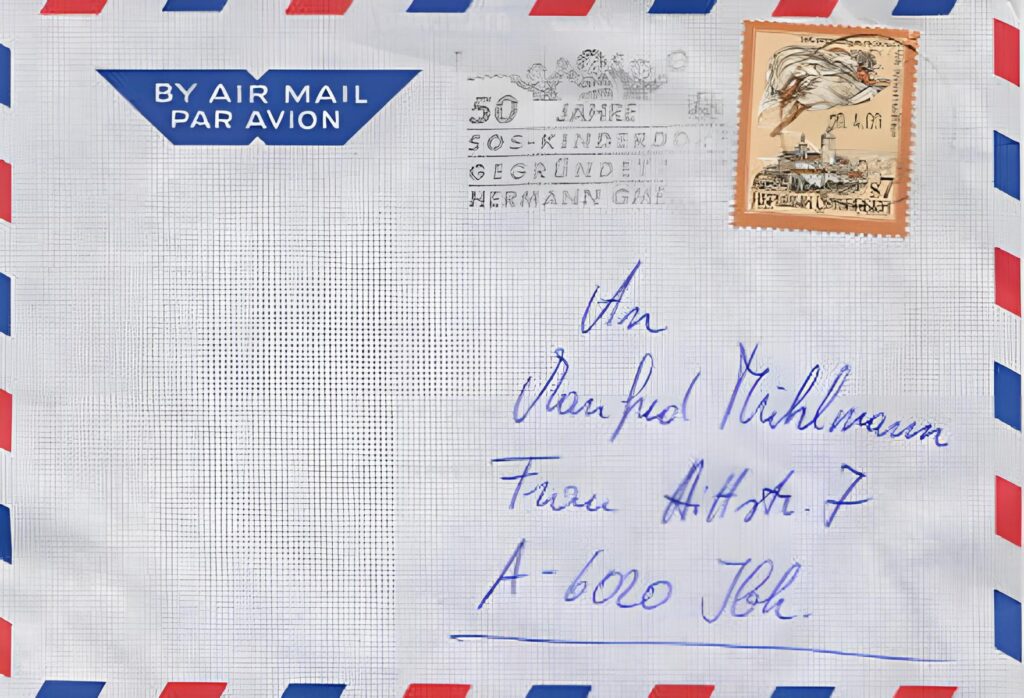 BY AIR MAIL
PAR AVION
50 JAHRE
SOS-KINDERDO
GEGRÜNDET
HERMANN GME
4.00
S7
An
Manfred Mühlmann
Frau Hittstr. 7
A-6020 Ibk.